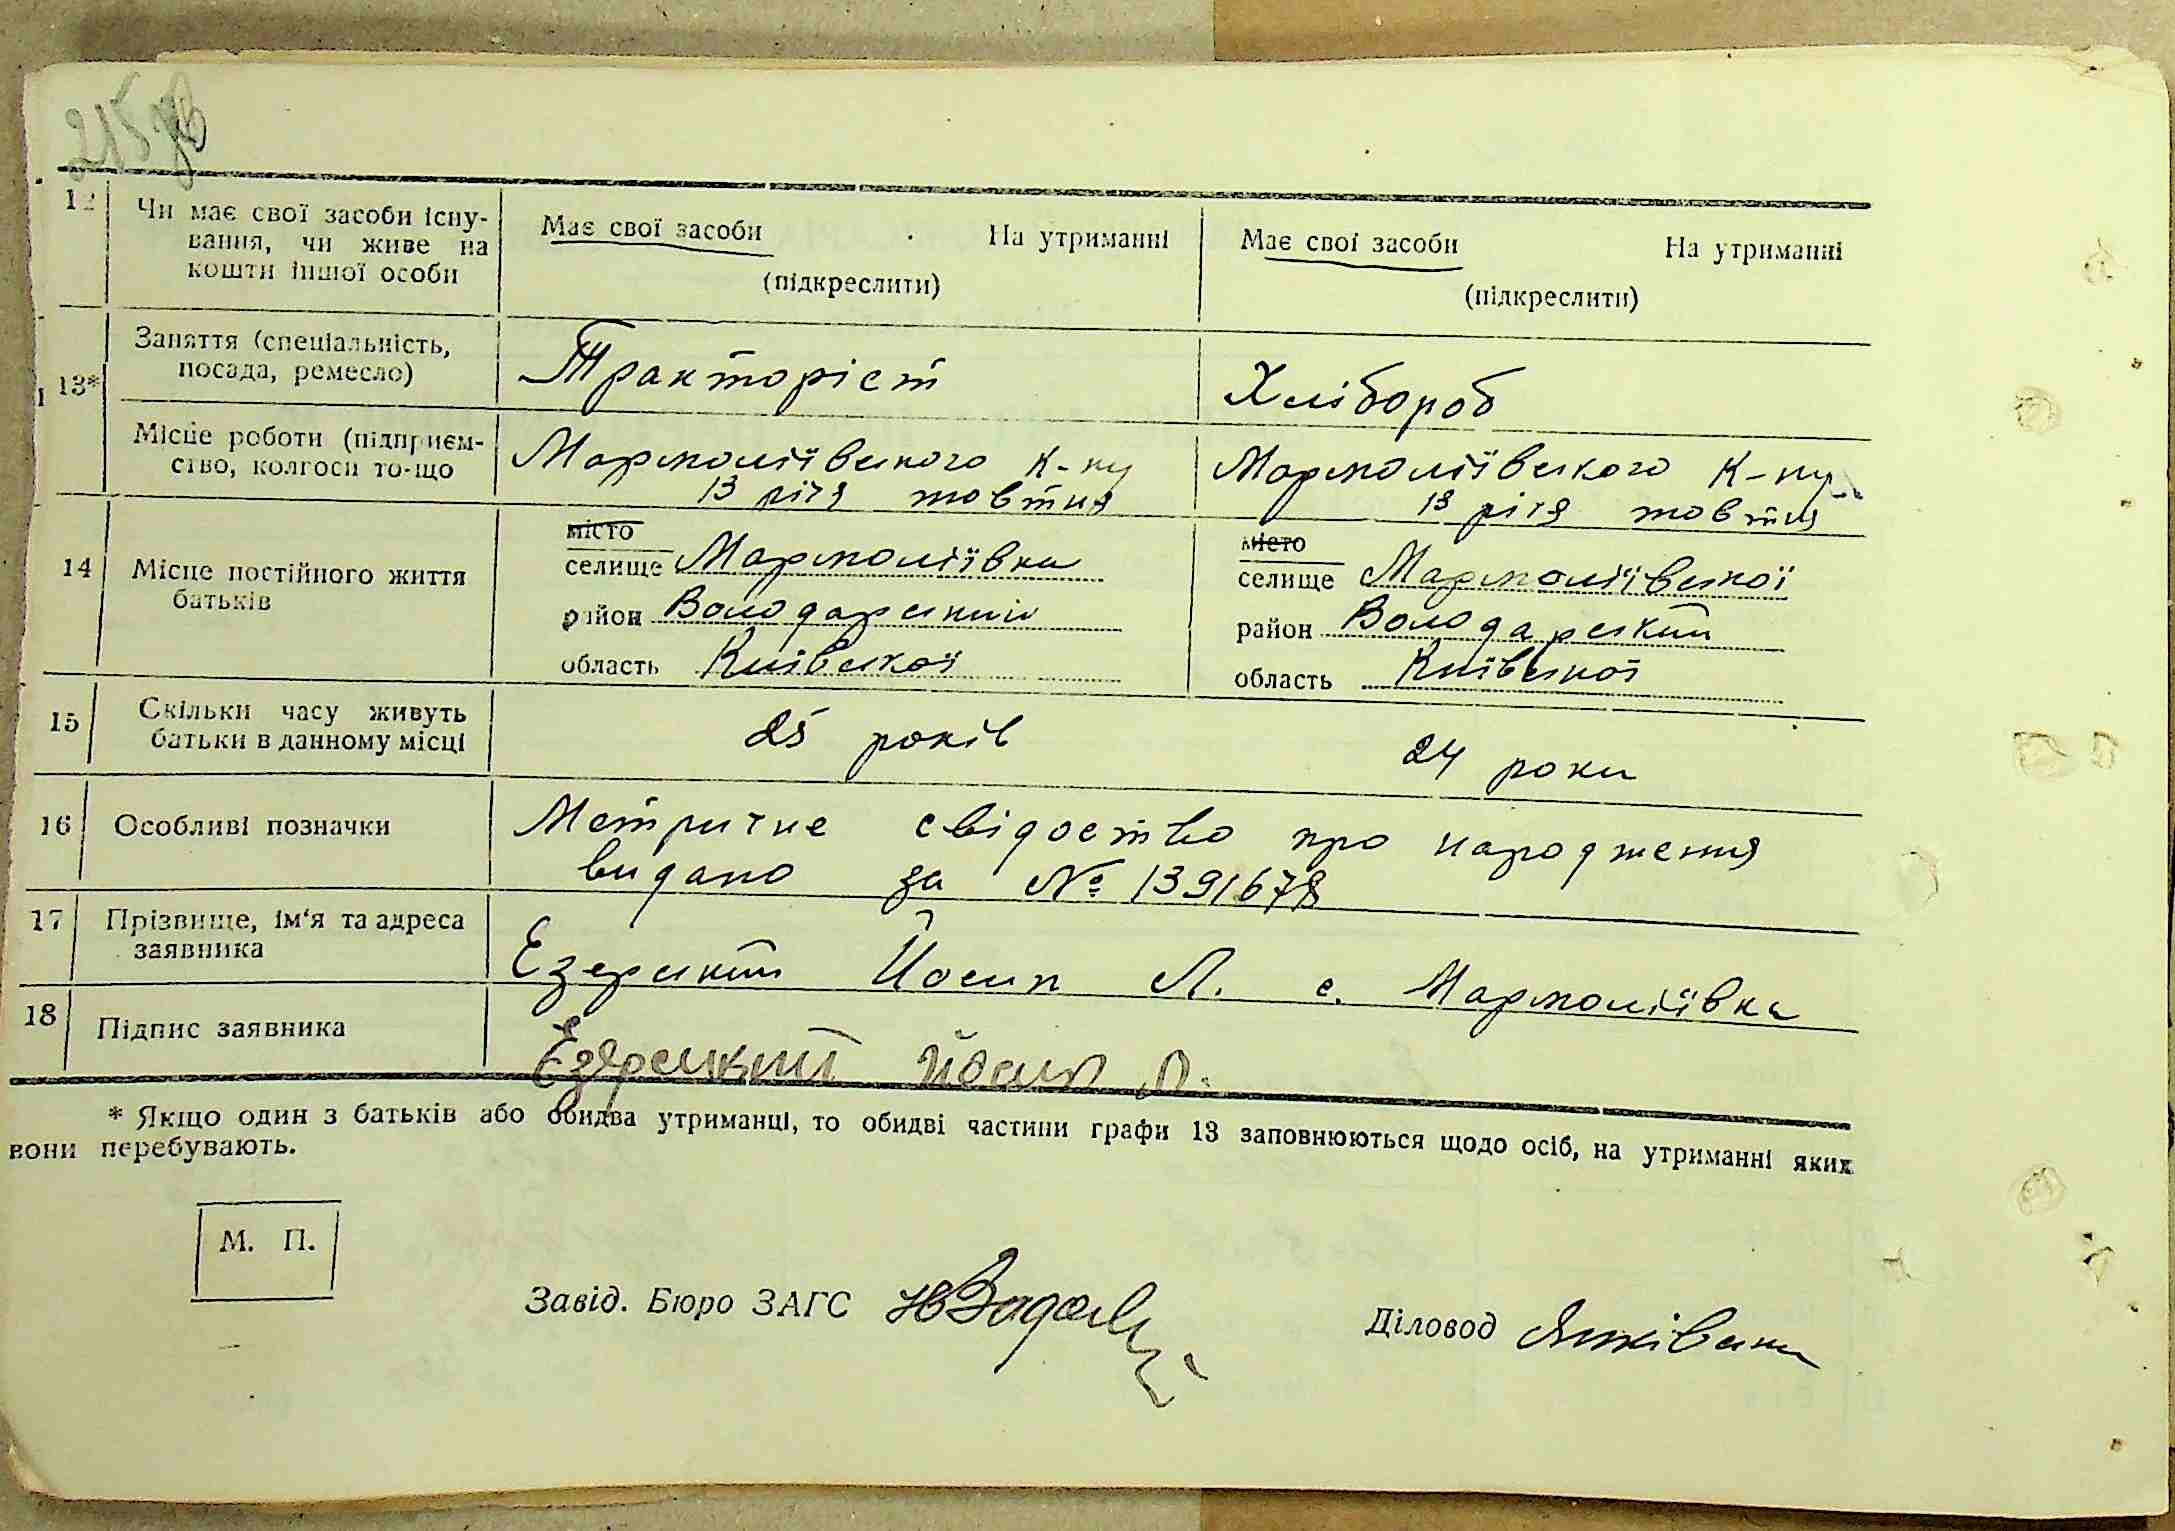 215 зв
12 Чи має свої засоби існу-
вання, чи живе на
кошти іншої особи
Має свої засоби На утриманні
(підкреслити)
Має свої засоби На утриманні
(підкреслити)
13* Заняття (спеціальність,
посада, ремесло)
Тракторіст
Хлібороб
Місце роботи (підприєм-
ство, колгосп то-що
Мармоліївського к-пу
13 річя жовтня
Мармоліївського к-пу
13 річя жовтня
14 Місце постійного життя
батьків
місто
селище Мармоліївка
район Володарський
область Київської
місто
селище Мармоліївської
район Володарский
область Київської
15 Скільки часу живуть
батьки в данному місці
25 років
24 роки
16 Особливі позначки
Метричне свідоство про народження
видано за № 1391678
17 Прізвище, ім'я та адреса
заявника
Езерский Йосип Л. с. Мармоліївка
18 Підпис заявника
Езерський Йосип Л.
* Якщо один з батьків або обидва утриманці, то обидві частини графи 13 заповнюються щодо осіб, на утриманні яких
вони перебувають.
М. П.
Завід. Бюро ЗАГС
Діловод